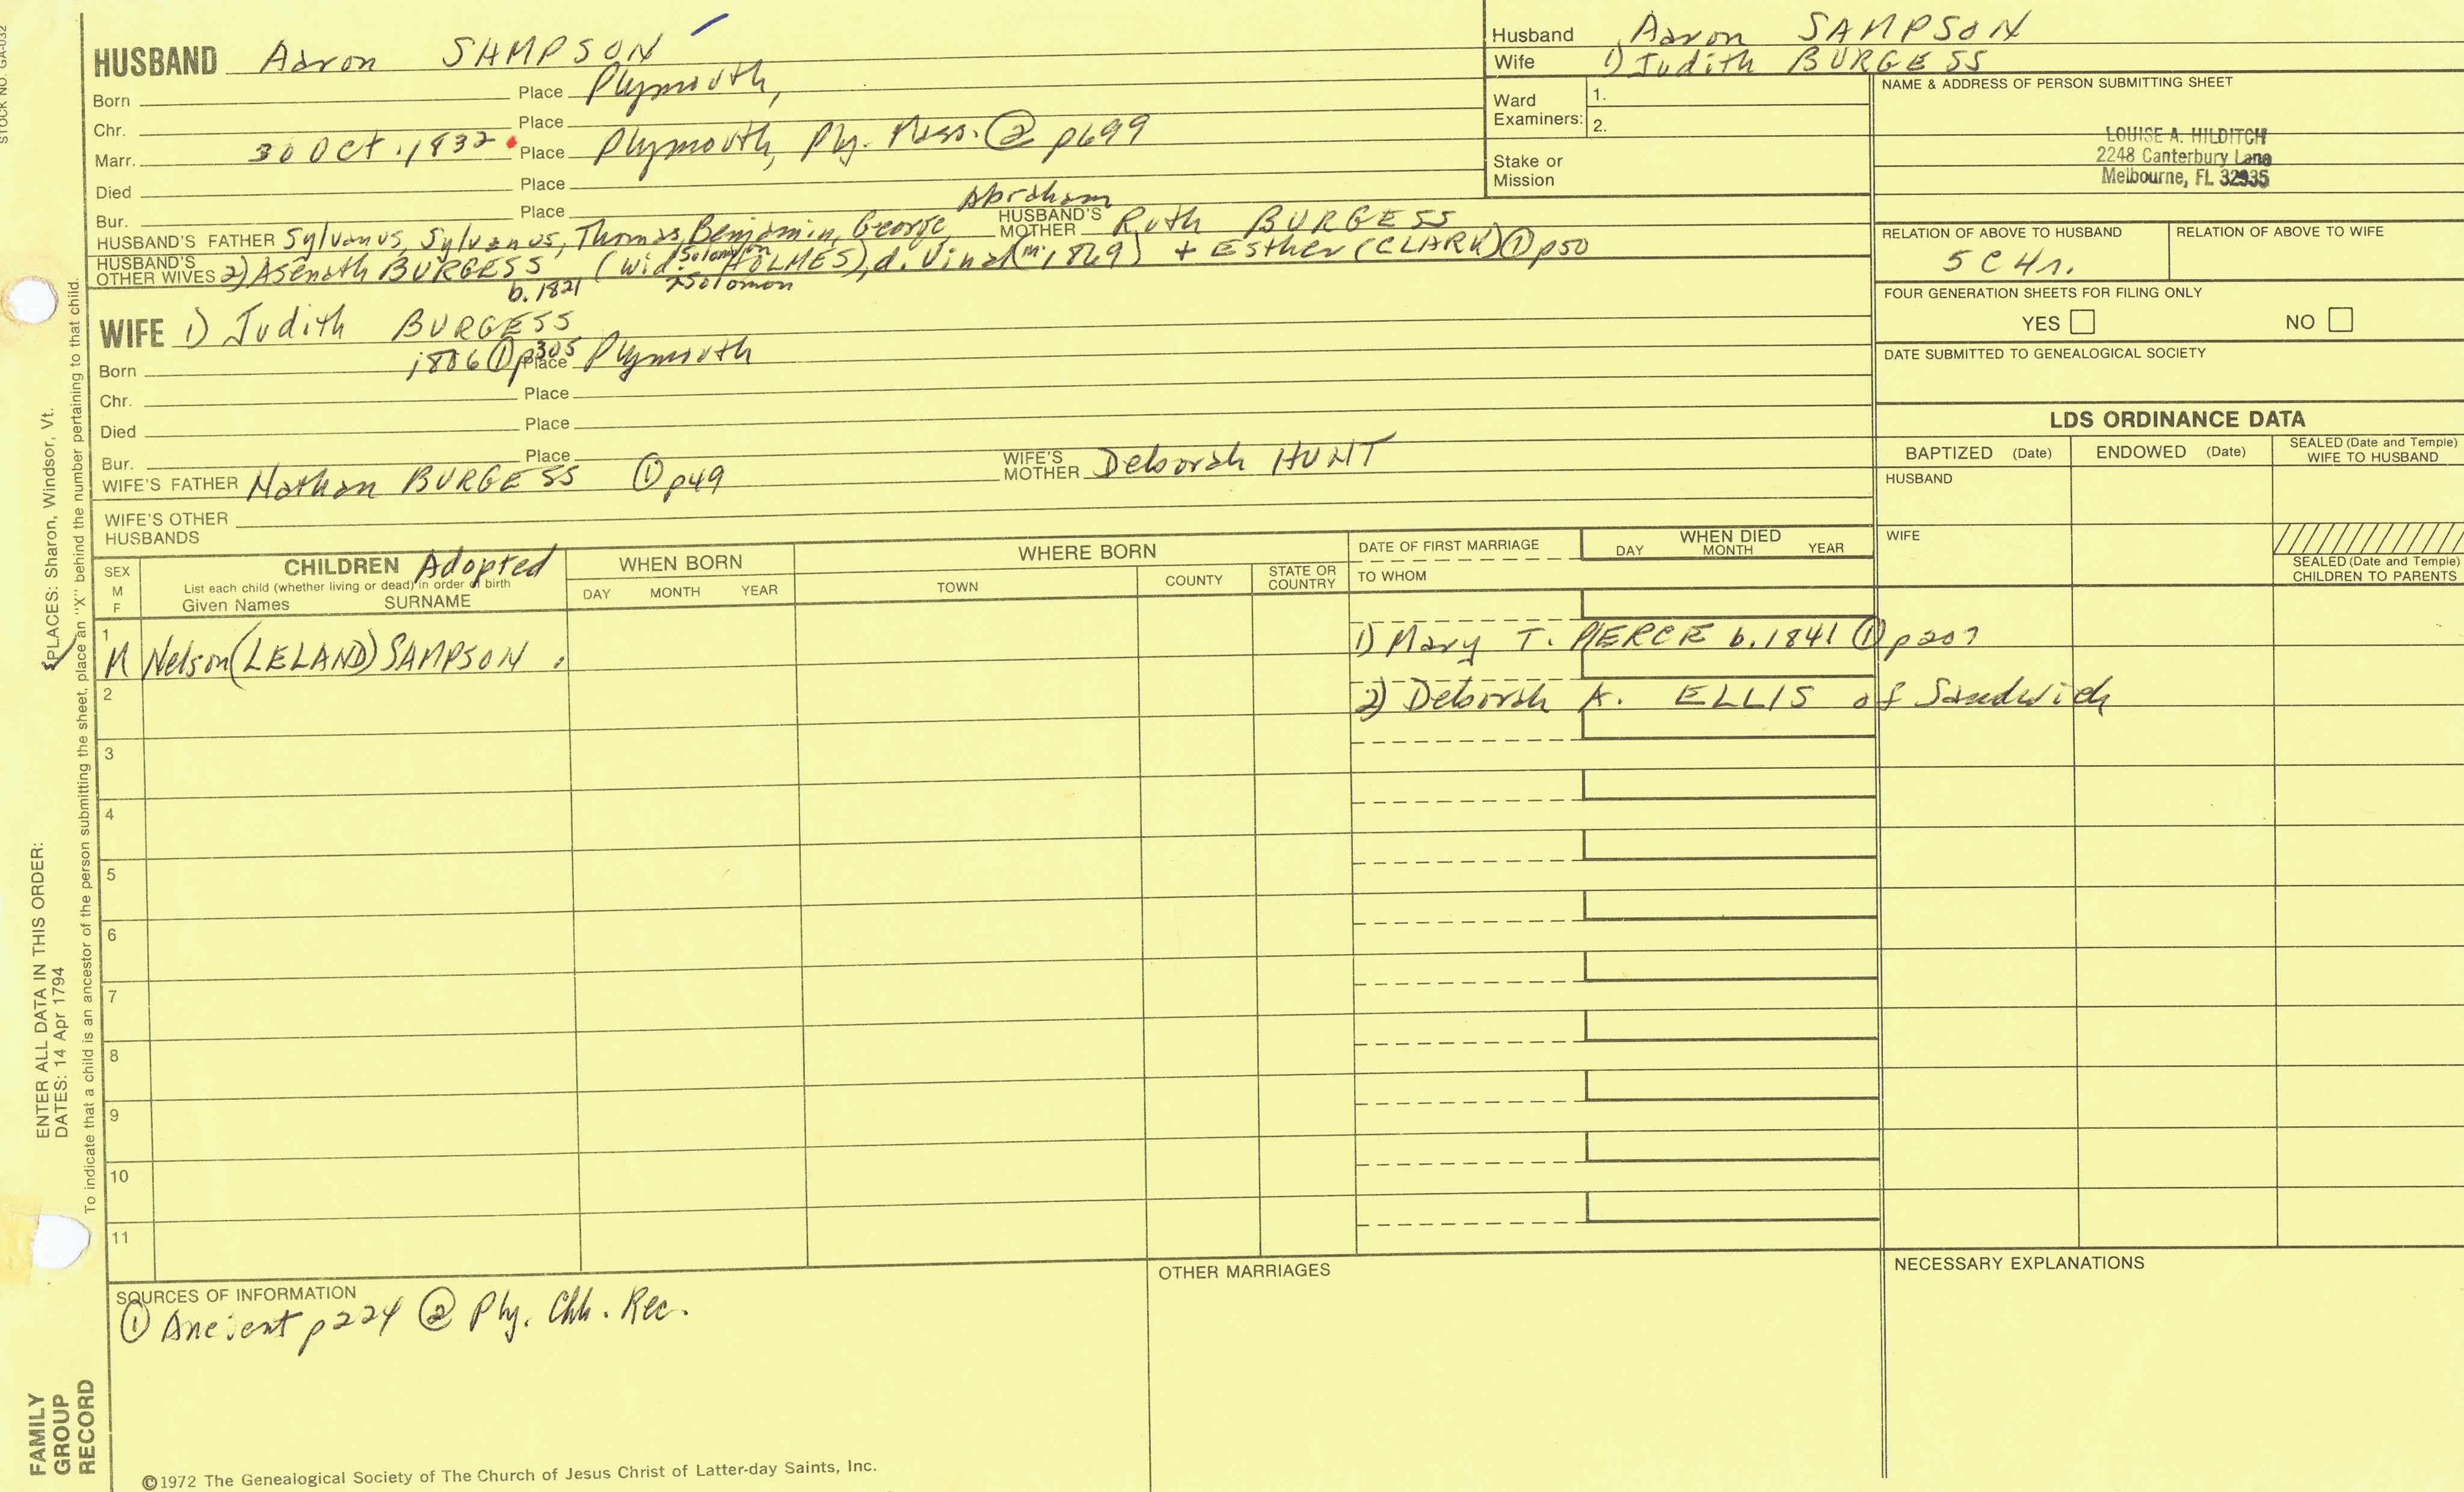 STOCK NO. GA-032
HUSBAND Aaron SAMPSON
Born Place Plymouth,
Chr. Place
Marr. 30 Oct. 1832 Place Plymouth, Ply. Mass. ② p699
Died Place
Bur. Place
Abraham
HUSBAND'S FATHER Sylvanus, Sylvanus, Thomas, Benjamin, George HUSBAND'S MOTHER Ruth BURGESS
HUSBAND'S OTHER WIVES 2) Asenath BURGESS (wid. Solomon HOLMES), d. Vinal (m. 1869) + Esther (CLARK) ① p50
b. 1821 Solomon
WIFE 1) Judith BURGESS
Born 1806 ① p305 Place Plymouth
Chr. Place
Died Place
Bur. Place
WIFE'S FATHER Nathan BURGESS ① p49 WIFE'S MOTHER Deborah HUNT
WIFE'S OTHER HUSBANDS
Husband Aaron SAMPSON
Wife 1) Judith BURGESS
Ward Examiners: 1.
2.
Stake or Mission
NAME & ADDRESS OF PERSON SUBMITTING SHEET
LOUISE A. HILDITCH
2248 Canterbury Lane
Melbourne, FL 32935
RELATION OF ABOVE TO HUSBAND RELATION OF ABOVE TO WIFE
5C 4r.
FOUR GENERATION SHEETS FOR FILING ONLY
YES NO
DATE SUBMITTED TO GENEALOGICAL SOCIETY
LDS ORDINANCE DATA
BAPTIZED (Date) ENDOWED (Date) SEALED (Date and Temple) WIFE TO HUSBAND
HUSBAND
WIFE
SEALED (Date and Temple) CHILDREN TO PARENTS
SEX M F
CHILDREN Adopted
List each child (whether living or dead) in order of birth
Given Names SURNAME
WHEN BORN
DAY MONTH YEAR
WHERE BORN
TOWN COUNTY STATE OR COUNTRY
DATE OF FIRST MARRIAGE
TO WHOM
WHEN DIED
DAY MONTH YEAR
1 M Nelson (LELAND) SAMPSON 1) Mary T. PIERCE b. 1841 ① p207
2 2) Deborah A. ELLIS of Sandwich
3
4
5
6
7
8
9
10
11
SOURCES OF INFORMATION
① Ancient p224 ② Ply. Chh. Rec.
OTHER MARRIAGES
NECESSARY EXPLANATIONS
©1972 The Genealogical Society of The Church of Jesus Christ of Latter-day Saints, Inc.
FAMILY GROUP RECORD
ENTER ALL DATA IN THIS ORDER:
DATES: 14 Apr 1794
PLACES: Sharon, Windsor, Vt.
To indicate that a child is an ancestor of the person submitting the sheet, place an "X" behind the number pertaining to that child.